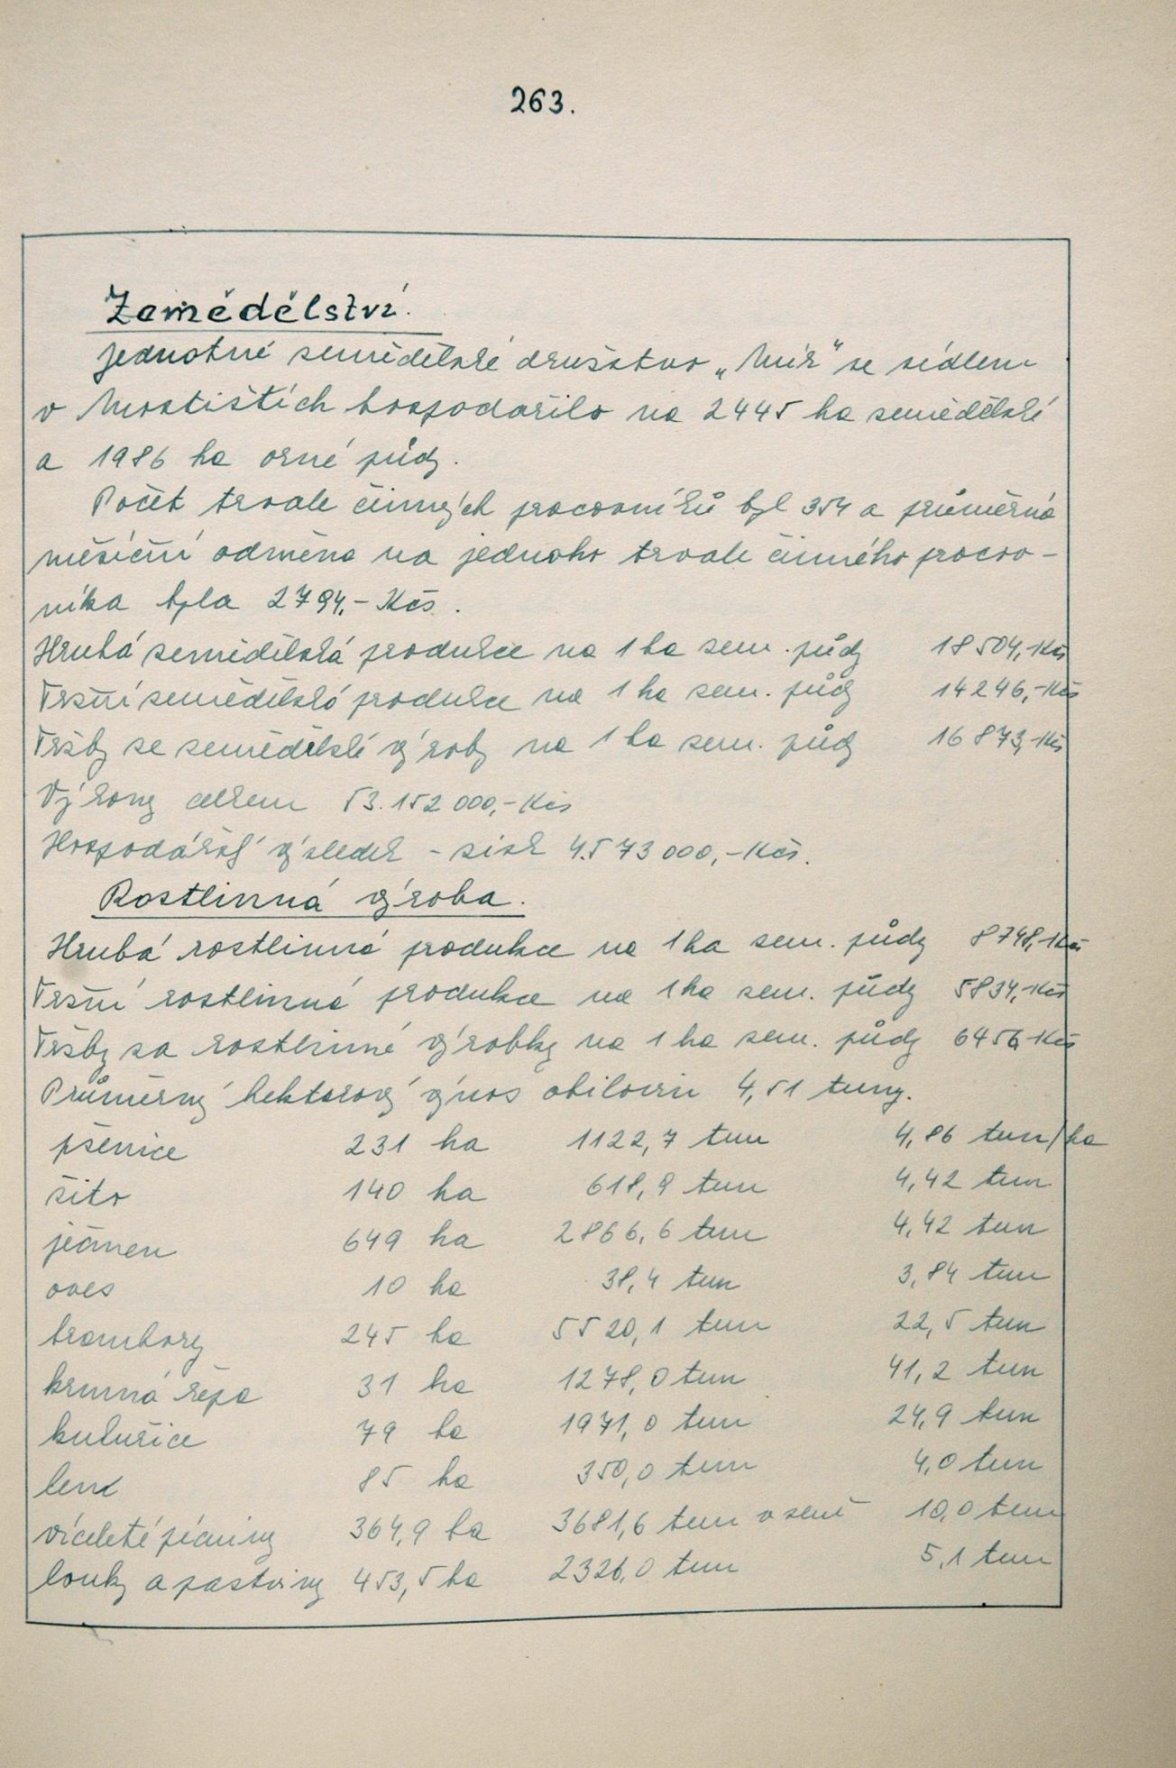 263.
Zemědělství.
Jednotné zemědělské družstvo „Mír" se sídlem
v Mostištích hospodařilo na 2445 ha zemědělské
a 1986 ha orné půdy.
Počet trvale činných pracovníků byl 354 a průměrná
měsíční odměna na jednoho trvale činného pracov-
níka byla 2794,- Kčs.
Hrubá zemědělská produkce na 1 ha zem. půdy 18 504,- Kčs
Tržní zemědělská produkce na 1 ha zem. půdy 14 246,- Kčs
Tržby ze zemědělské výroby na 1 ha zem. půdy 16 873,- Kčs
Výkony celkem 53.152 000,- Kčs
Hospodářský výsledek - zisk 4.573 000,- Kčs.
Rostlinná výroba.
Hrubá rostlinná produkce na 1 ha zem. půdy 8748,- Kčs
Tržní rostlinná produkce na 1 ha zem. půdy 5834,- Kčs
Tržby za rostlinné výrobky na 1 ha zem. půdy 6456,- Kčs
Průměrný hektarový výnos obilovin 4,51 tuny.
pšenice 231 ha 1122,7 tun 4,86 tun/ha
žito 140 ha 618,9 tun 4,42 tun
ječmen 649 ha 2866,6 tun 4,42 tun
oves 10 ha 38,4 tun 3,84 tun
brambory 245 ha 5520,1 tun 22,5 tun
krmná řepa 31 ha 1278,0 tun 41,2 tun
kukuřice 79 ha 1971,0 tun 24,9 tun
len 85 ha 350,0 tun 4,0 tun
víceleté pícniny 364,9 ha 3681,6 tun v seně 10,0 tun
louky a pastviny 453,5 ha 2326,0 tun 5,1 tun